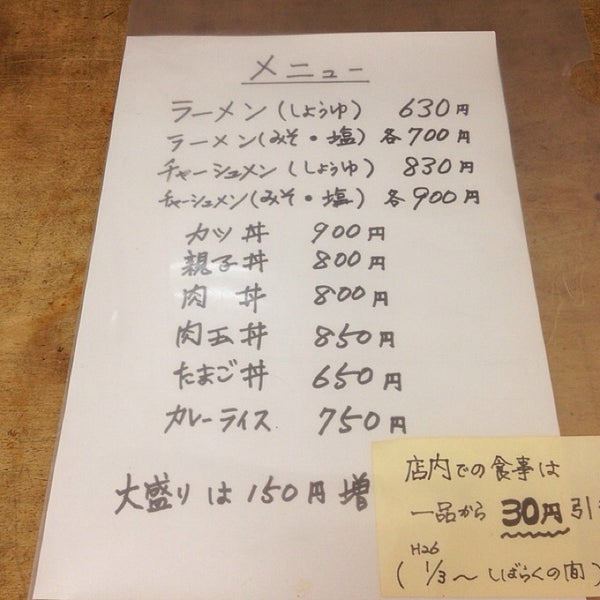 メニュー
ラーメン(しょうゆ) 630円
ラーメン(みそ・塩) 各700円
チャーシュメン(しょうゆ) 830円
チャーシュメン(みそ・塩) 各900円
カツ丼 900円
親子丼 800円
肉 丼 800円
肉玉丼 850円
たまご丼 650円
カレーライス 750円
大盛りは150円増
店内での食事は
一品から30円引
(H26 1/3〜しばらくの間)